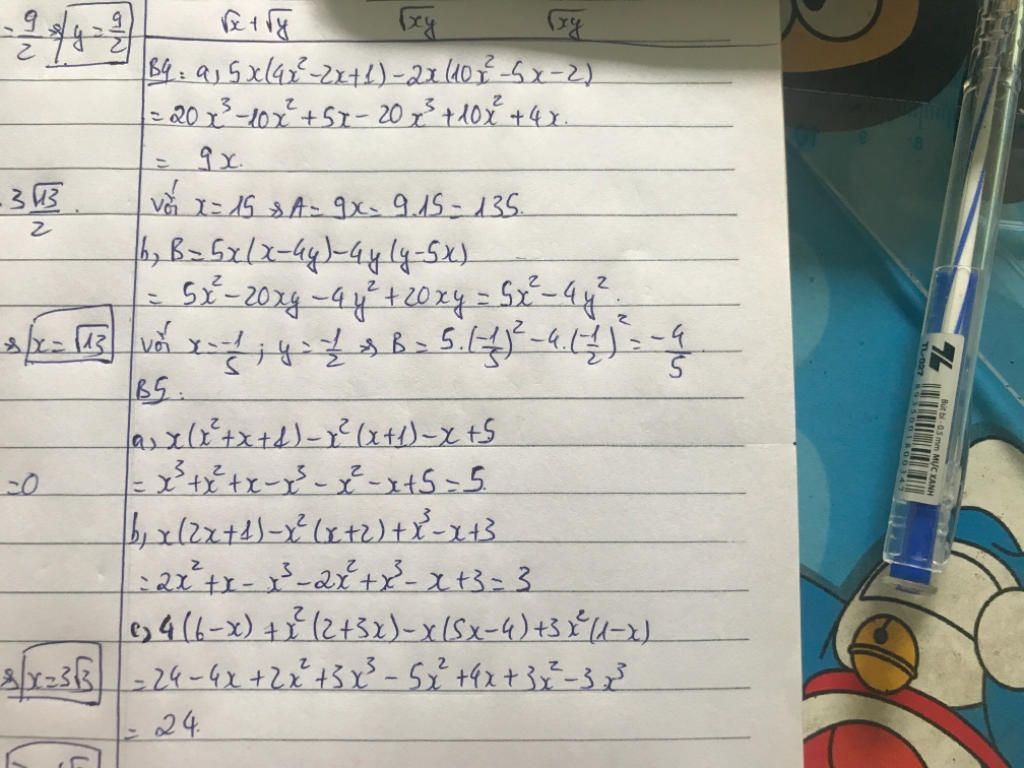 = 9/2 ⇒ y = 9/2
√x + √y   √xy   √xy
B4: a, 5x(4x² - 2x + 1) - 2x(10x² - 5x - 2)
= 20x³ - 10x² + 5x - 20x³ + 10x² + 4x.
= 9x.
3√13/2.
với x = 15 ⇒ A = 9x = 9.15 = 135.
b, B = 5x(x - 4y) - 4y(y - 5x)
= 5x² - 20xy - 4y² + 20xy = 5x² - 4y².
⇒ x = √13
với x = -1/5 ; y = -1/2 ⇒ B = 5.(-1/5)² - 4.(-1/2)² = -4/5
B5:
a, x(x² + x + 1) - x²(x + 1) - x + 5
= 0
= x³ + x² + x - x³ - x² - x + 5 = 5
b, x(2x + 1) - x²(x + 2) + x³ - x + 3
= 2x² + x - x³ - 2x² + x³ - x + 3 = 3
c, 4(6 - x) + x²(2 + 3x) - x(5x - 4) + 3x²(1 - x)
⇒ x = 3√3
= 24 - 4x + 2x² + 3x³ - 5x² + 4x + 3x² - 3x³
= 24.
TL
TL-027
Bút bi - 0.5 mm MỰC XANH
8
9